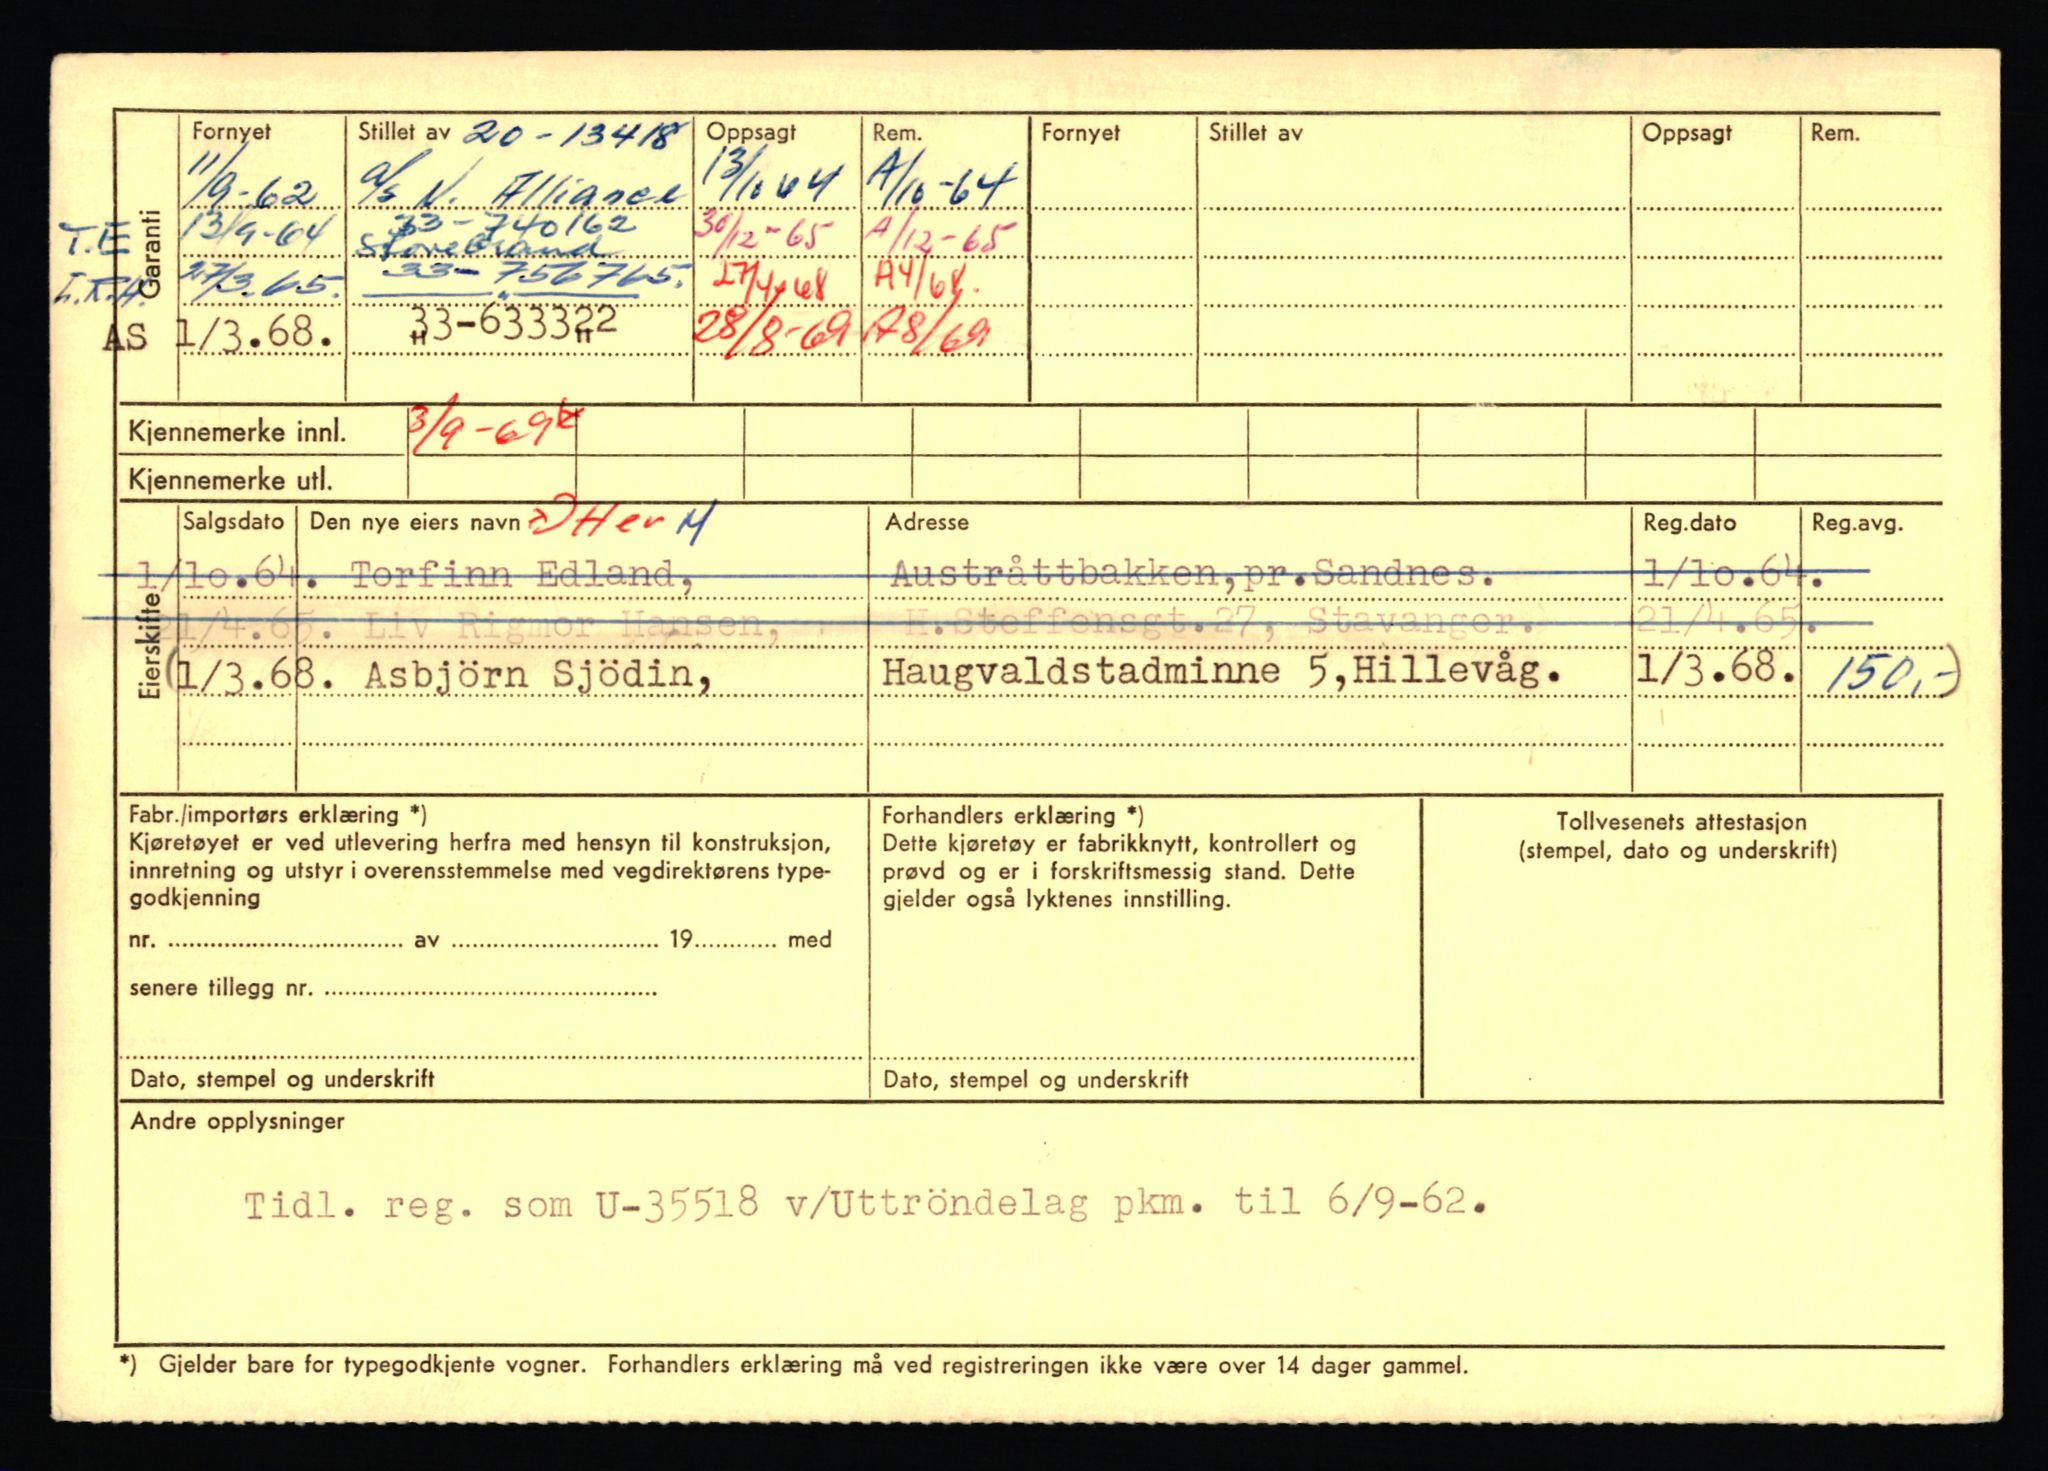 Fornyet Stillet av 20-13418 Oppsagt Rem. Fornyet Stillet av Oppsagt Rem.
11/9-62 a/s N. Alliance 13/10 64 A/10-64
Garanti
T.E 13/9-64 33-740162 30/12-65 A/12-65
Storebrand
27/3.65. 33-756765. 27/4-68 A4/68.
AS 1/3.68. 33-633322 28/8-69 A8/69
" "
Kjennemerke innl. 3/9-69
Kjennemerke utl.
Eierskifte
Salgsdato Den nye eiers navn Adresse Reg.dato Reg.avg.
1/10.64. Torfinn Edland, Austråttbakken,pr.Sandnes. 1/10.64.
21/4.65. Liv Rigmor Hansen, H.Steffensgt.27, Stavanger. 21/4.65.
(1/3.68. Asbjörn Sjödin, Haugvaldstadminne 5,Hillevåg. 1/3.68. 150,-)
Fabr./importørs erklæring *)
Kjøretøyet er ved utlevering herfra med hensyn til konstruksjon,
innretning og utstyr i overensstemmelse med vegdirektørens type-
godkjenning
nr. .................. av .................. 19............ med
senere tillegg nr. ..................
Dato, stempel og underskrift
Forhandlers erklæring *)
Dette kjøretøy er fabrikknytt, kontrollert og
prøvd og er i forskriftsmessig stand. Dette
gjelder også lyktenes innstilling.
Dato, stempel og underskrift
Tollvesenets attestasjon
(stempel, dato og underskrift)
Andre opplysninger
Tidl. reg. som U-35518 v/Uttröndelag pkm. til 6/9-62.
*) Gjelder bare for typegodkjente vogner. Forhandlers erklæring må ved registreringen ikke være over 14 dager gammel.